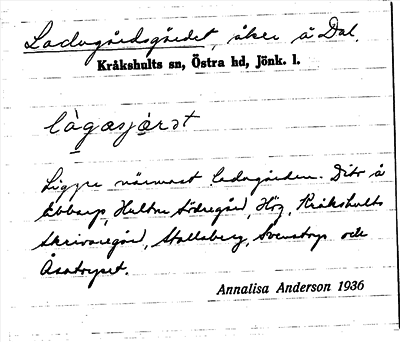 Ladugårdsgärdet, åker å Dal.
Kråkshults sn, Östra hd, Jönk. l.
làgasjæ̀rət
Ligger närmast ladugården. Dito å
Ebbarp, Hultna Södregård, Hög, Kråkshults
Skrivaregård, Stallsberg, Svenstorp och
Åsatorpet.
Annalisa Anderson 1936